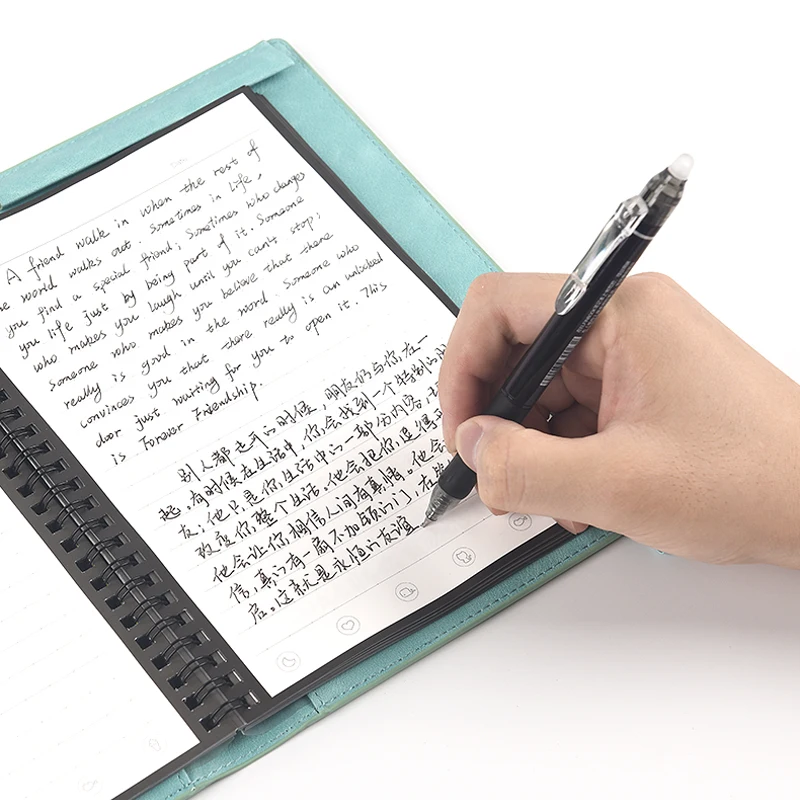 A friend walk in when the rest of
word walks out. Sometimes in life,
you find a special friend; Sometimes who changes
you life just by being part of it. Someone
who makes you laugh until you can't stop;
Someone who makes you believe that there
really is good in the word. Someone who
convinces you that there really is an unlocked
door just waiting for you to open it. This
is Forever Friendship.
别人都走开的时候,朋友仍与你在一
起。有时候在生活中,你会找到一个特别的
友,他只是你生活中的一部分内容,
改变你整个生活。他会把你逗得
他会让你相信人间有真情。他会
信,真的有一扇不加锁的门,在
启。这就是永恒的友谊